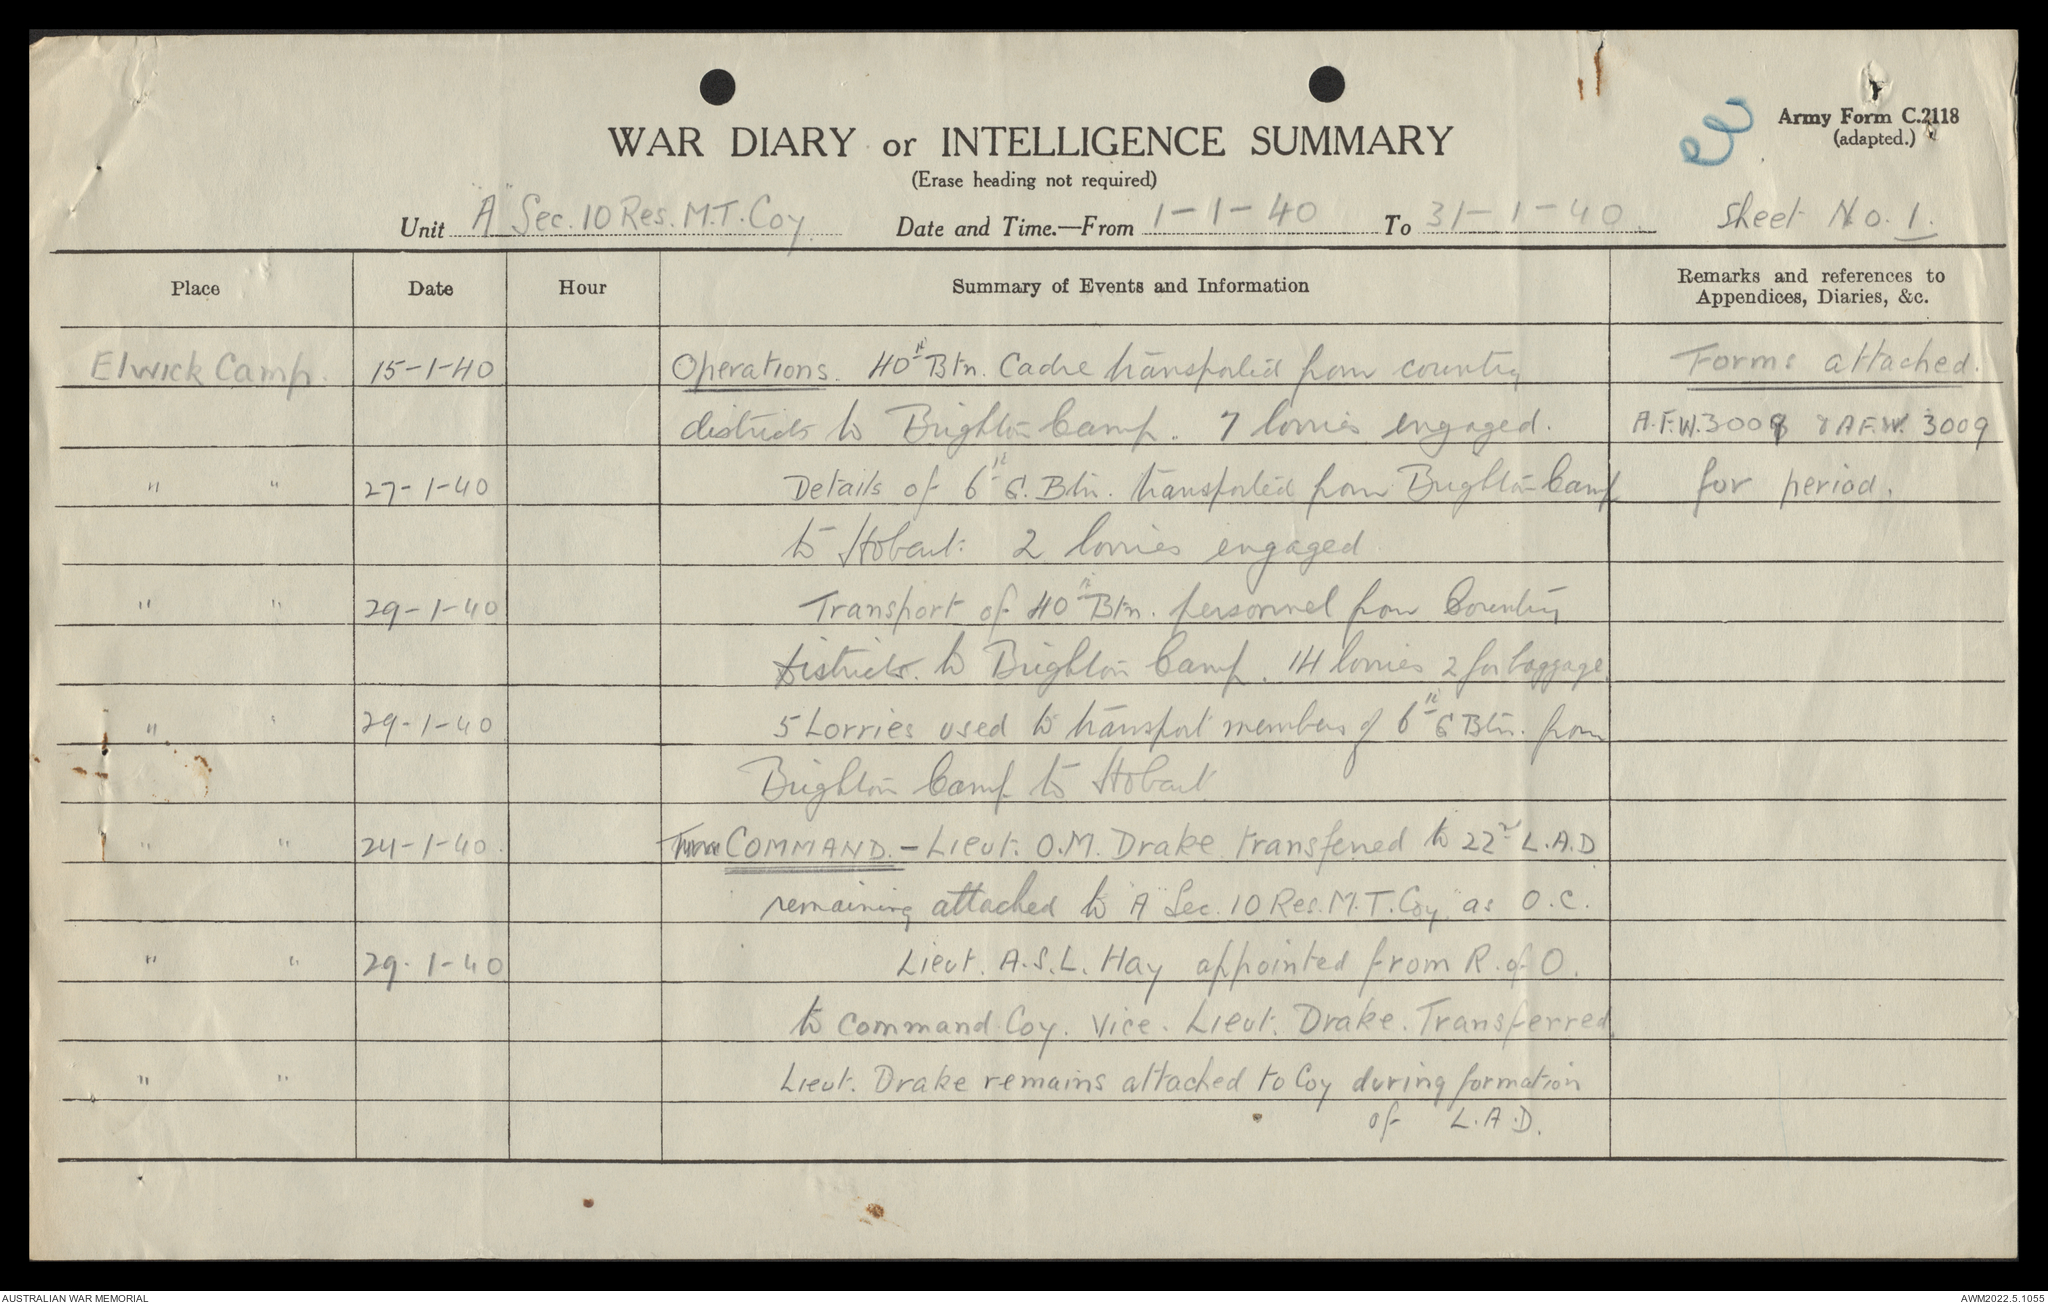 Army Form C.2118
(adapted.)
WAR DIARY or INTELLIGENCE SUMMARY
(Erase heading not required)
Unit "A" Sec. 10 Res. M.T. Coy. Date and Time.—From 1-1-40 To 31-1-40. Sheet No. 1.
Place Date Hour Summary of Events and Information Remarks and references to Appendices, Diaries, &c.
Elwick Camp. 15-1-40 Operations. 40th Btn. Cadre transported from country Forms attached.
districts to Brighton Camp. 7 lorries engaged. A.F.W.3008 & A.F.W. 3009
" " 27-1-40 Details of 6th G. Btn. transported from Brighton Camp for period.
to Hobart. 2 lorries engaged
" " 29-1-40 Transport of 40th Btn. personnel from Country
districts to Brighton Camp. 14 lorries 2 for baggage.
" " 29-1-40 5 Lorries used to transport members of 6th G Btn. from
Brighton Camp to Hobart
" " 24-1-40. COMMAND. - Lieut. O.M. Drake transferred to 22nd L.A.D
remaining attached to "A" Sec. 10 Res. M.T. Coy" as O.C.
" " 29-1-40 Lieut. A.S.L. Hay appointed from R. of O.
to command Coy. Vice. Lieut. Drake. Transferred.
" " Lieut. Drake remains attached to Coy during formation
of L.A.D.
AUSTRALIAN WAR MEMORIAL AWM2022.5.1055